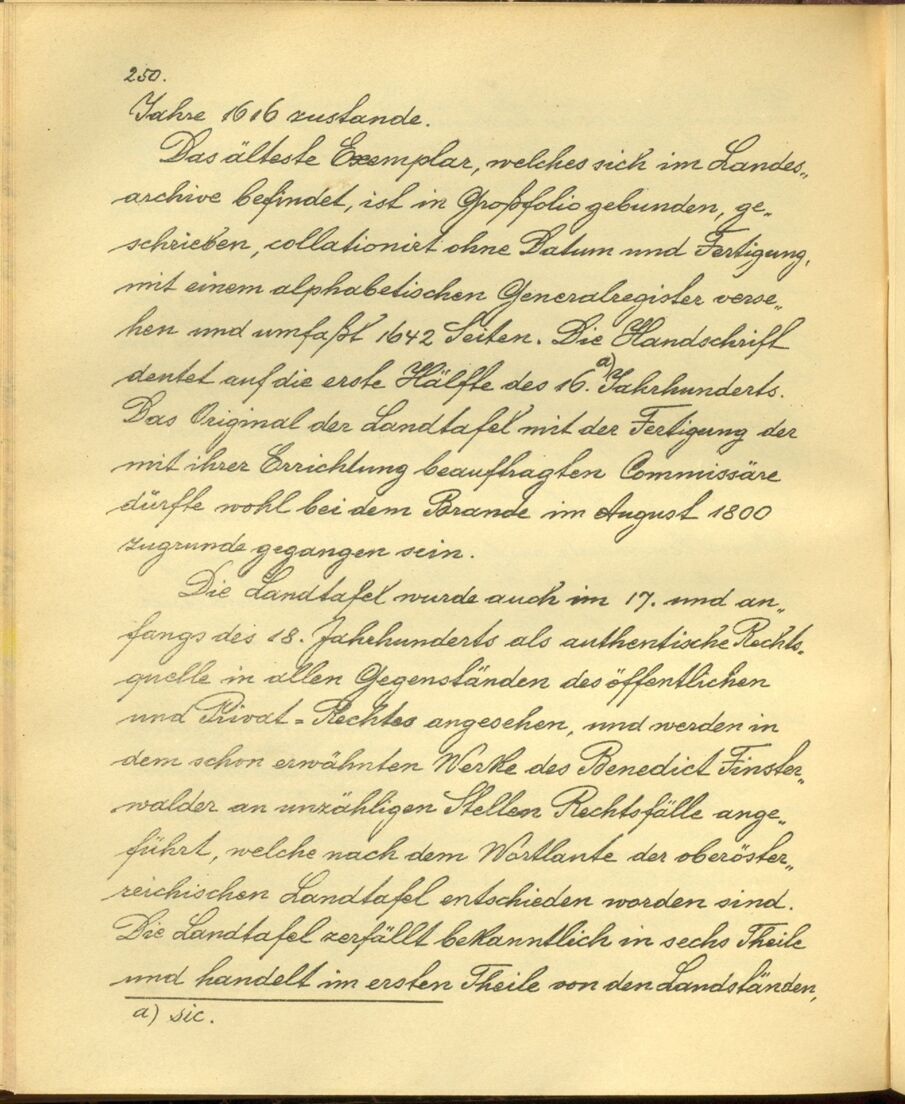 250.
Jahre 1616 zustande.
Das älteste Exemplar, welches sich im Landes„
archive befindet, ist in Großfolio gebunden, ge„
schrieben, collationirt ohne Datum und Fertigung,
mit einem alphabetischen Generalregister verse„
hen und umfaßt 1642 Seiten. Die Handschrift
deutet auf die erste Hälfte des 16. a) Jahrhunderts.
Das Original der Landtafel mit der Fertigung der
mit ihrer Errichtung beauftragten Commissäre
dürfte wohl bei dem Brande im August 1800
zugrunde gegangen sein.
Die Landtafel wurde auch im 17. und an„
fangs des 18. Jahrhunderts als authentische Rechts„
quelle in allen Gegenständen des öffentlichen
und Privat=Rechtes angesehen, und werden in
dem schon erwähnten Werke des Benedict Finster„
walder an unzähligen Stellen Rechtsfälle ange„
führt, welche nach dem Wortlaute der oberöster„
reichischen Landtafel entschieden worden sind.
Die Landtafel zerfällt bekanntlich in sechs Theile
und handelt im ersten Theile von den Landständen,
a) sic.